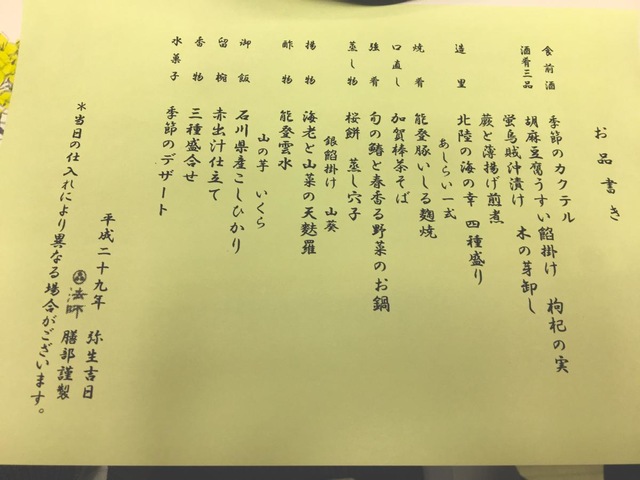 お品書き
食前酒 季節のカクテル
酒肴三品 胡麻豆腐うすい餡掛け 枸杞の実
蛍烏賊沖漬け 木の芽卸し
蕨と薄揚げ煎煮
造里 北陸の海の幸 四種盛り
あしらい一式
焼肴 能登豚いしる麹焼
口直し 加賀棒茶そば
強肴 旬の鰆と春香る野菜のお鍋
蒸し物 桜餅 蒸し穴子
銀餡掛け 山葵
揚物 海老と山菜の天麩羅
酢物 能登雲水
山の芋 いくら
御飯 石川県産こしひかり
留椀 赤出汁仕立て
香物 三種盛合せ
水菓子 季節のデザート
平成二十九年 弥生吉日
法師 膳部謹製
＊当日の仕入れにより異なる場合がございます。